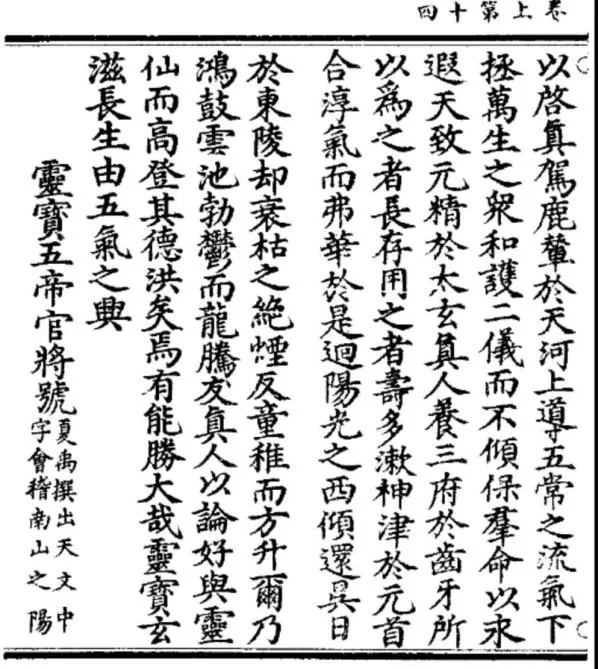 卷上第十四
以啓真駕鹿輦於天河上導五常之流氣下
拯萬生之衆和護二儀而不傾保羣命以永
遐天致元精於太玄真人養三府於齒牙所
以為之者長存用之者壽多漱神津於元首
合淳氣而弗華於是迴陽光之西傾還昃日
於東陵却衰枯之絶煙反童稚而方升爾乃
鴻鼓雲池勃鬱而龍騰友真人以論好與靈
仙而高登其德洪矣焉有能勝大哉靈寶玄
滋長生由五氣之興
靈寶五帝官將號
夏禹撰出天文中
字會稽南山之陽